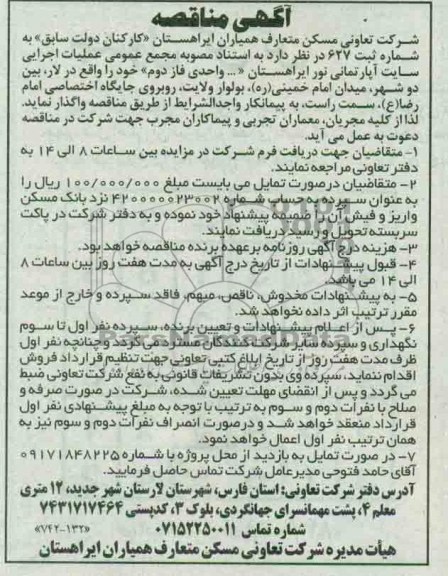 آگهی مناقصه
شرکت تعاونی مسکن متعارف همیاران ایراهستان «کارکنان دولت سابق» به
شماره ثبت ۶۲۷ در نظر دارد به استناد مصوبه مجمع عمومی عملیات اجرایی
سایت آپارتمانی نور ایراهستان « ... واحدی فاز دوم» خود را واقع در لار، بین
دو شهر، میدان امام خمینی(ره)، بولوار ولایت، روبروی جایگاه اختصاصی امام
رضا(ع)، سمت راست، به پیمانکار واجدالشرایط از طریق مناقصه واگذار نماید.
لذا از کلیه مجریان، معماران تجربی و پیمانکاران مجرب جهت شرکت در مناقصه
دعوت به عمل می آید.
۱- متقاضیان جهت دریافت فرم شرکت در مزایده بین ساعات ۸ الی ۱۴ به
دفتر تعاونی مراجعه نمایند.
۲- متقاضیان درصورت تمایل می بایست مبلغ ۱۰۰/۰۰۰/۰۰۰ ریال را
به عنوان سپرده به حساب شماره ۴۲۰۰۰۰۰۲۳۰۰۲ نزد بانک مسکن
واریز و فیش آن را ضمیمه پیشنهاد خود نموده و به دفتر شرکت در پاکت
سربسته تحویل و رسید دریافت نمایند.
۳- هزینه درج آگهی روزنامه برعهده برنده مناقصه خواهد بود.
۴- قبول پیشنهادات از تاریخ درج آگهی به مدت هفت روز بین ساعات ۸
الی ۱۴ می باشد.
۵- به پیشنهادات مخدوش، ناقص، مبهم، فاقد سپرده و خارج از موعد
مقرر ترتیب اثر داده نخواهد شد.
۶- پس از اعلام پیشنهادات و تعیین برنده، سپرده نفر اول تا سوم
نگهداری و سپرده سایر شرکت کنندگان مسترد می گردد و چنانچه نفر اول
ظرف مدت هفت روز از تاریخ ابلاغ کتبی تعاونی جهت تنظیم قرارداد فروش
اقدام ننماید، سپرده وی بدون تشریفات قانونی به نفع شرکت تعاونی ضبط
می گردد و پس از انقضای مهلت تعیین شده، شرکت در صورت صرفه و
صلاح با نفرات دوم و سوم به ترتیب با توجه به مبلغ پیشنهادی نفر اول
قرارداد منعقد خواهد شد و درصورت انصراف نفرات دوم و سوم نیز به
همان ترتیب نفر اول اعمال خواهد نمود.
۷- در صورت تمایل به بازدید از محل پروژه با شماره ۰۹۱۷۱۸۴۸۲۲۵
آقای حامد فتوحی مدیرعامل شرکت تماس حاصل فرمایید.
آدرس دفتر شرکت تعاونی: استان فارس، شهرستان لارستان شهر جدید، ۱۲ متری
معلم ۴، پشت مهمانسرای جهانگردی، بلوک ۳، کدپستی ۷۴۳۱۷۱۷۴۶۴
شماره تماس ۰۷۱۵۲۲۵۰۰۱۱ «۷۴۲-۱۳۲»
هیأت مدیره شرکت تعاونی مسکن متعارف همیاران ایراهستان